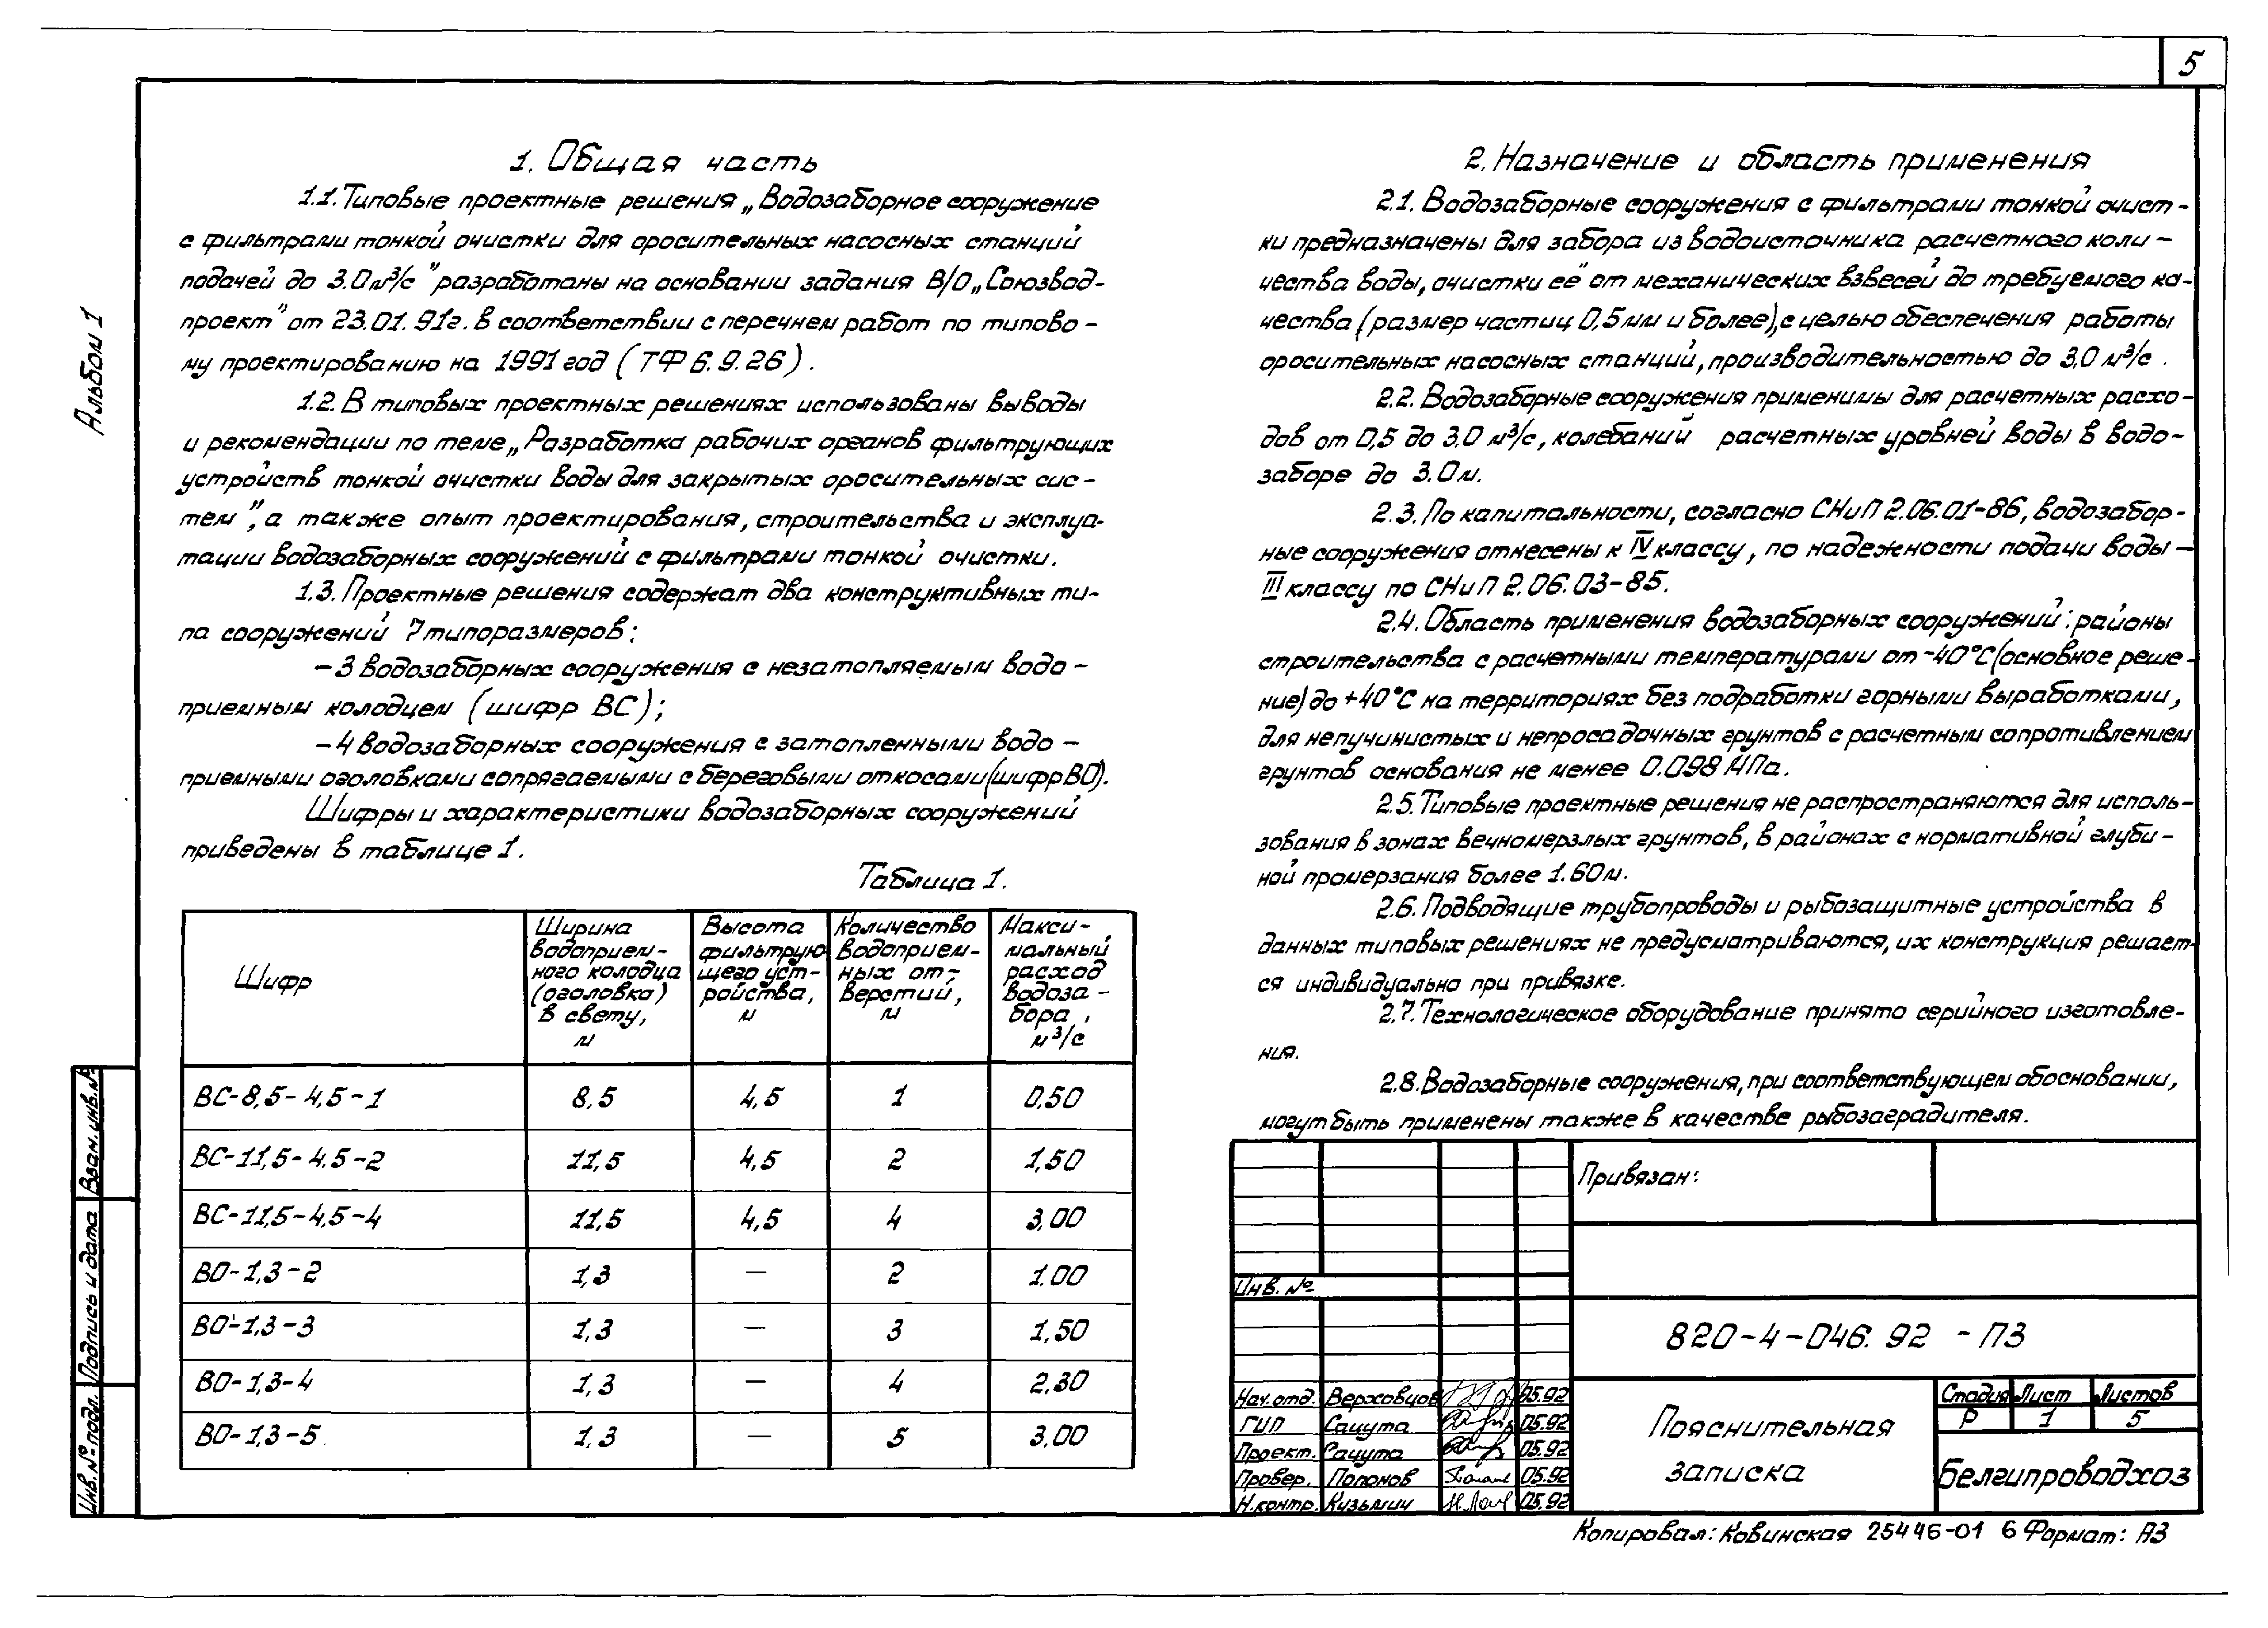 5
Альбом 1
1. Общая часть
1.1. Типовые проектные решения „Водозаборное сооружение
с фильтрами тонкой очистки для оросительных насосных станций
подачей до 3.0 м³/с" разработаны на основании задания В/О „Союзвод-
проект" от 23.01.91г. в соответствии с перечнем работ по типово-
му проектированию на 1991 год (ТФ 6.9.26).
1.2. В типовых проектных решениях использованы выводы
и рекомендации по теме „Разработка рабочих органов фильтрующих
устройств тонкой очистки воды для закрытых оросительных сис-
тем", а также опыт проектирования, строительства и эксплуа-
тации водозаборных сооружений с фильтрами тонкой очистки.
1.3. Проектные решения содержат два конструктивных ти-
па сооружений 7 типоразмеров:
– 3 водозаборных сооружения с незатопляемым водо-
приемным колодцем (шифр ВС);
– 4 водозаборных сооружения с затопленными водо-
приемными оголовками сопрягаемыми с береговыми откосами (шифр ВО).
Шифры и характеристики водозаборных сооружений
приведены в таблице 1.
Таблица 1.
Шифр | Ширина водоприем-ного колодца (оголовка) в свету, м | Высота фильтрую щего уст-ройства, м | Количество водоприем-ных от-верстий, м | Макси-мальный расход водоза-бора, м³/с
ВС-8,5-4,5-1 | 8,5 | 4,5 | 1 | 0,50
ВС-11,5-4,5-2 | 11,5 | 4,5 | 2 | 1,50
ВС-11,5-4,5-4 | 11,5 | 4,5 | 4 | 3,00
ВО-1,3-2 | 1,3 | — | 2 | 1.00
ВО-1,3-3 | 1,3 | — | 3 | 1,50
ВО-1,3-4 | 1,3 | — | 4 | 2,30
ВО-1,3-5. | 1,3 | — | 5 | 3,00
2. Назначение и область применения
2.1. Водозаборные сооружения с фильтрами тонкой очист-
ки предназначены для забора из водоисточника расчетного коли-
чества воды, очистки её от механических взвесей до требуемого ка-
чества (размер частиц 0,5 мм и более), с целью обеспечения работы
оросительных насосных станций, производительностью до 3,0 м³/с.
2.2. Водозаборные сооружения применимы для расчетных расхо-
дов от 0,5 до 3,0 м³/с, колебаний расчетных уровней воды в водо-
заборе до 3.0 м.
2.3. По капитальности, согласно СНиП 2.06.01-86, водозабор-
ные сооружения отнесены к IV классу, по надежности подачи воды –
III классу по СНиП 2.06.03-85.
2.4. Область применения водозаборных сооружений: районы
строительства с расчетными температурами от -40°С (основное реше-
ние) до +40°С на территориях без подработки горными выработками,
для непучинистых и непросадочных грунтов с расчетным сопротивлением
грунтов основания не менее 0.098 МПа.
2.5. Типовые проектные решения не распространяются для исполь-
зования в зонах вечномерзлых грунтов, в районах с нормативной глуби-
ной промерзания более 1.60 м.
2.6. Подводящие трубопроводы и рыбозащитные устройства в
данных типовых решениях не предусматриваются, их конструкция решает-
ся индивидуально при привязке.
2.7. Технологическое оборудование принято серийного изготовле-
ния.
2.8. Водозаборные сооружения, при соответствующем обосновании,
могут быть применены также в качестве рыбозаградителя.
Привязан:
Инв. №
820-4-046.92 - ПЗ
Нач.отд. Верховцов 05.92
ГИП Сацута 05.92
Проект. Сацута 05.92
Провер. Попонов 05.92
Н.контр. Кузьмич 05.92
Пояснительная
записка
Стадия Лист Листов
Р 1 5
Белгипроводхоз
Взам.инв.№
Подпись и дата
Инв.№ подл.
Копировал: Ковинская 25446-01 6 Формат: А3